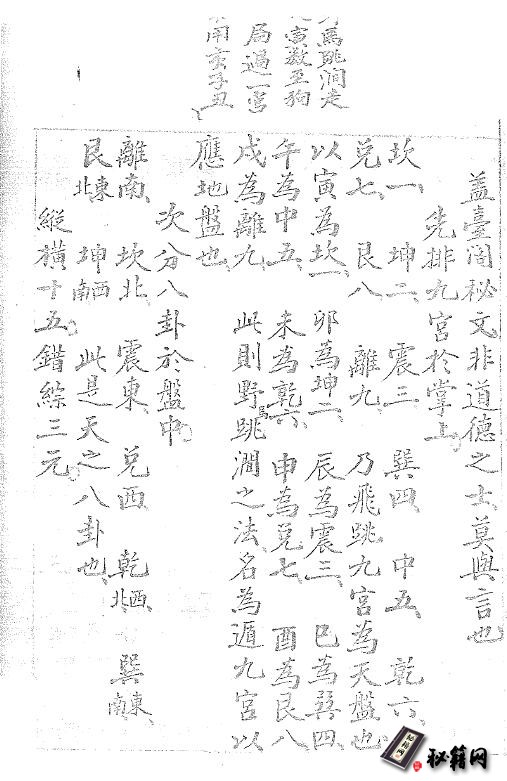 馬跳澗走
寅數至狗
局過一宮
用亥子丑
蓋臺閣秘文非道德之士莫與言也
先排九宮於掌上
坎一 坤二 震三 巽四 中五 乾六
兌七 艮八 離九 乃飛跳九宮為天盤也
以寅為坎一 卯為坤一 辰為震三 巳為巽四
午為中五 未為乾六 申為兌七 酉為艮八
戌為離九 此則野馬跳澗之法名為遁九宮以
應地盤也
次分八卦於盤中
離南 坎北 震東 兌西 乾西北 巽東南
艮東北 坤西南 此是天之八卦也
縱橫十五錯綜三元
秘籍网